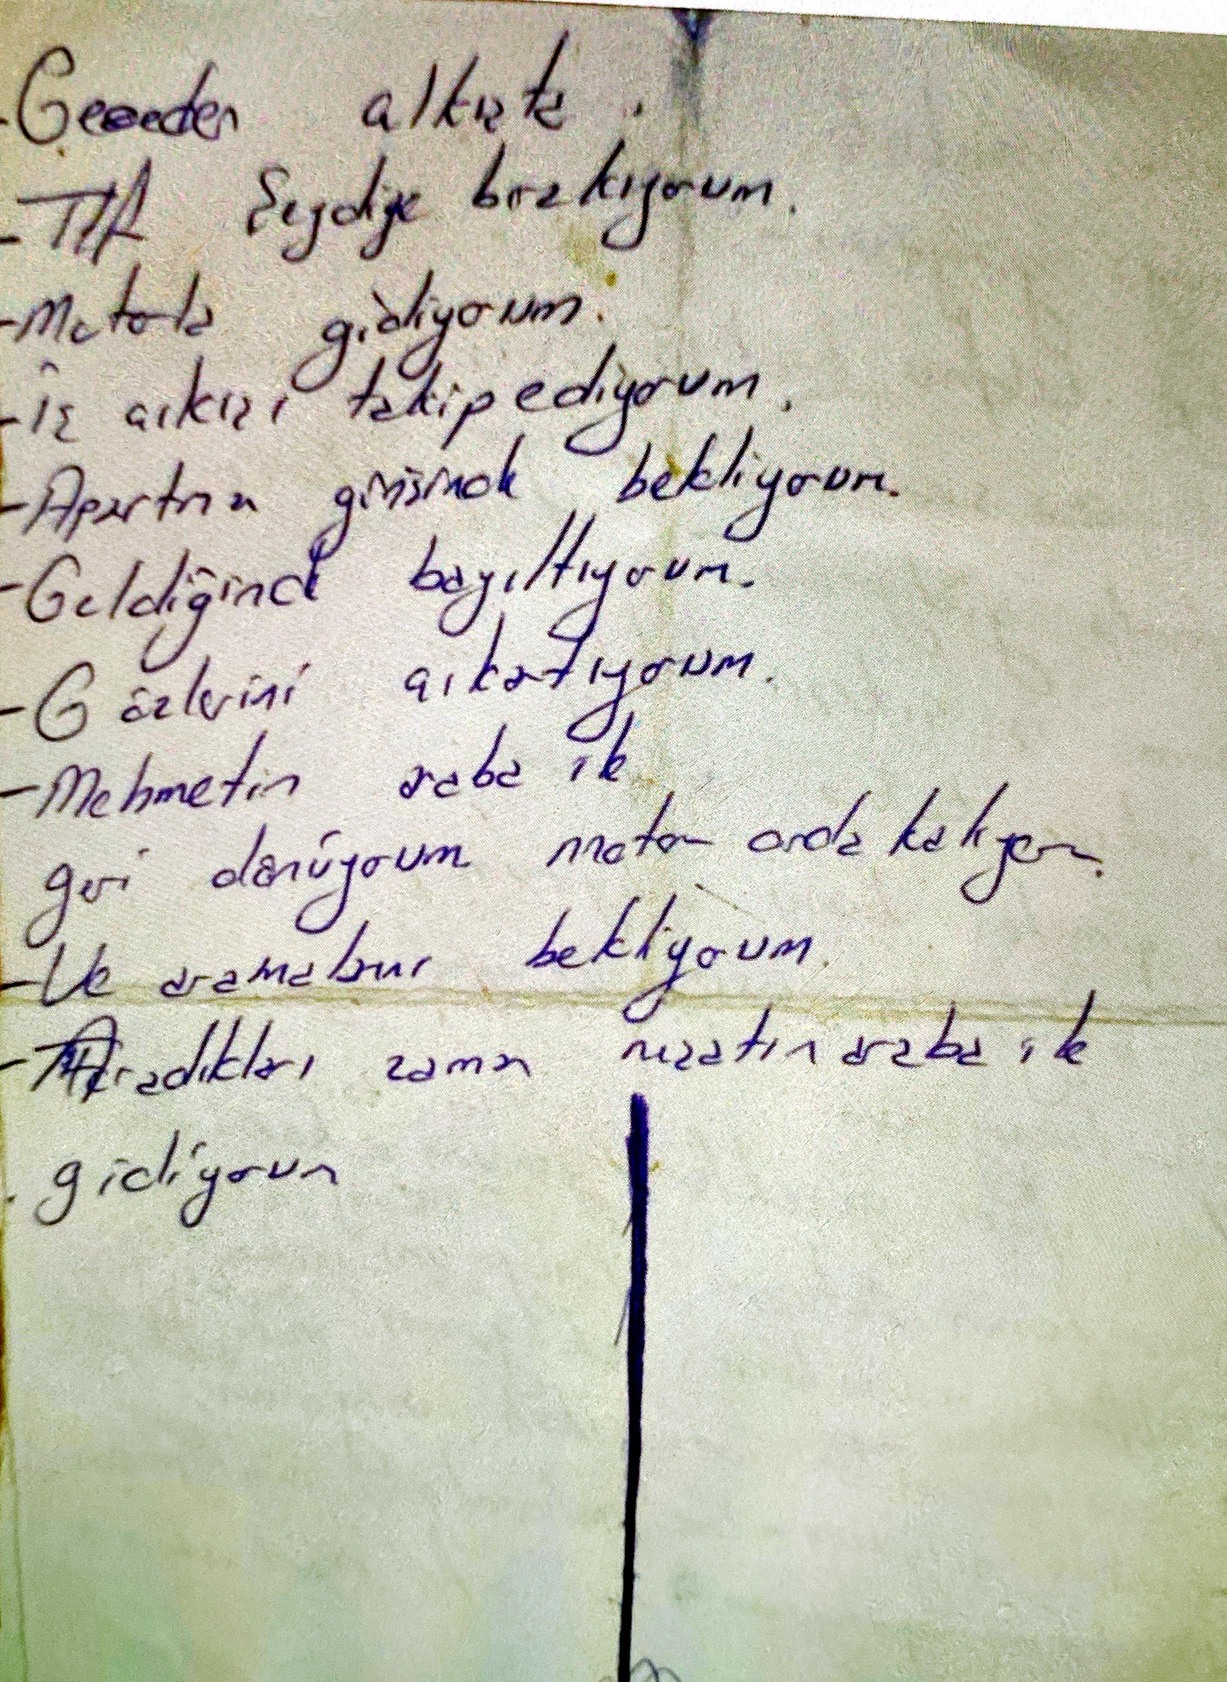 -Geceden alkıza.
-Tlf Seydiye bırakıyorum.
-Motorla gidiyorum.
-İş çıkışı takip ediyorum.
-Apartman girişinde bekliyorum.
-Geldiğinde bayıltıyorum.
-Gözlerini çıkartıyorum.
-Mehmetin araba ile
geri dönüyorum motor orda kalıyor.
-Ve aramaları bekliyorum.
-Aradıkları zaman nizatın araba ile
gidiyorum